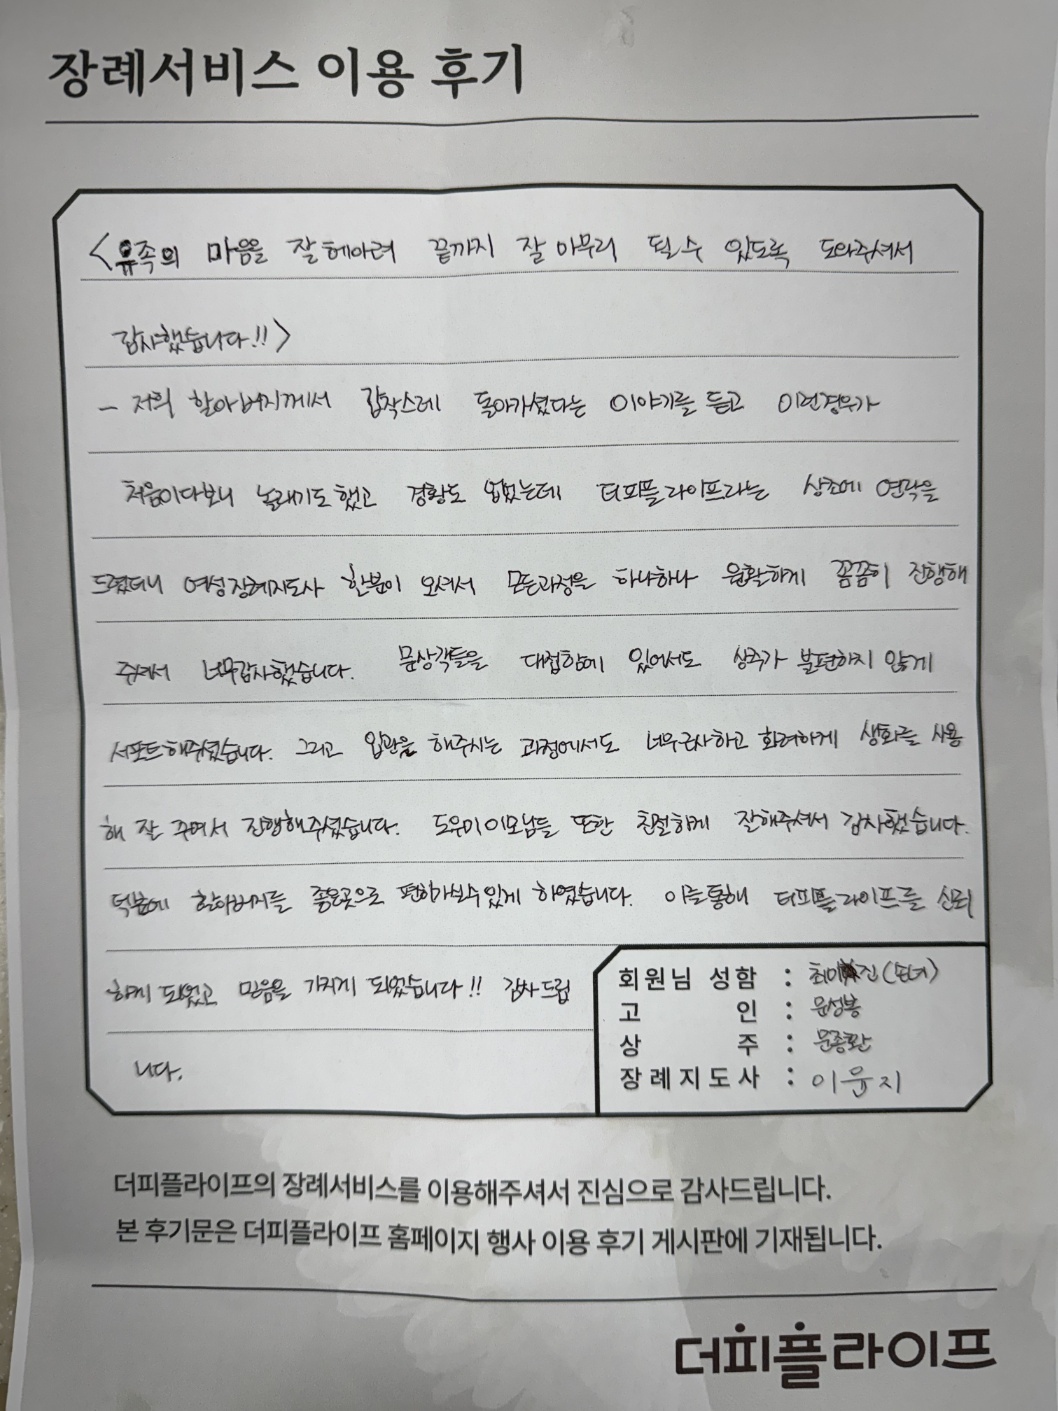 장례서비스 이용 후기
<유족의 마음을 잘 헤아려 끝까지 잘 마무리 될 수 있도록 도와주셔서
감사했습니다!!>
- 저희 할아버지께서 갑작스레 돌아가셨다는 이야기를 듣고 이런경우가
처음이다보니 놀래기도 했고 경황도 없었는데 더피플라이프라는 상조에 연락을
드렸더니 여성장례지도사 한분이 오셔서 모든과정을 하나하나 원활하게 꼼꼼히 진행해
주셔서 너무감사했습니다. 문상객들을 대접함에 있어서도 상주가 불편하지 않게
서포트해주셨습니다. 그리고 입관을 해주시는 과정에서도 너무근사하고 화려하게 생화를 사용
해 잘 꾸며서 진행해주셨습니다. 도우미이모님들 또한 친절하게 잘해주셔서 감사했습니다.
덕분에 할아버지를 좋은곳으로 편히가보수있게 하였습니다. 이를통해 더피플라이프를 신뢰
하게 되었고 믿음을 가지게 되었습니다!! 감사드립
니다.
회원님 성함 : (손녀)
고 인 : 윤성봉
상 주 :
장례지도사 : 이윤지
더피플라이프의 장례서비스를 이용해주셔서 진심으로 감사드립니다.
본 후기문은 더피플라이프 홈페이지 행사 이용 후기 게시판에 기재됩니다.
더피플라이프